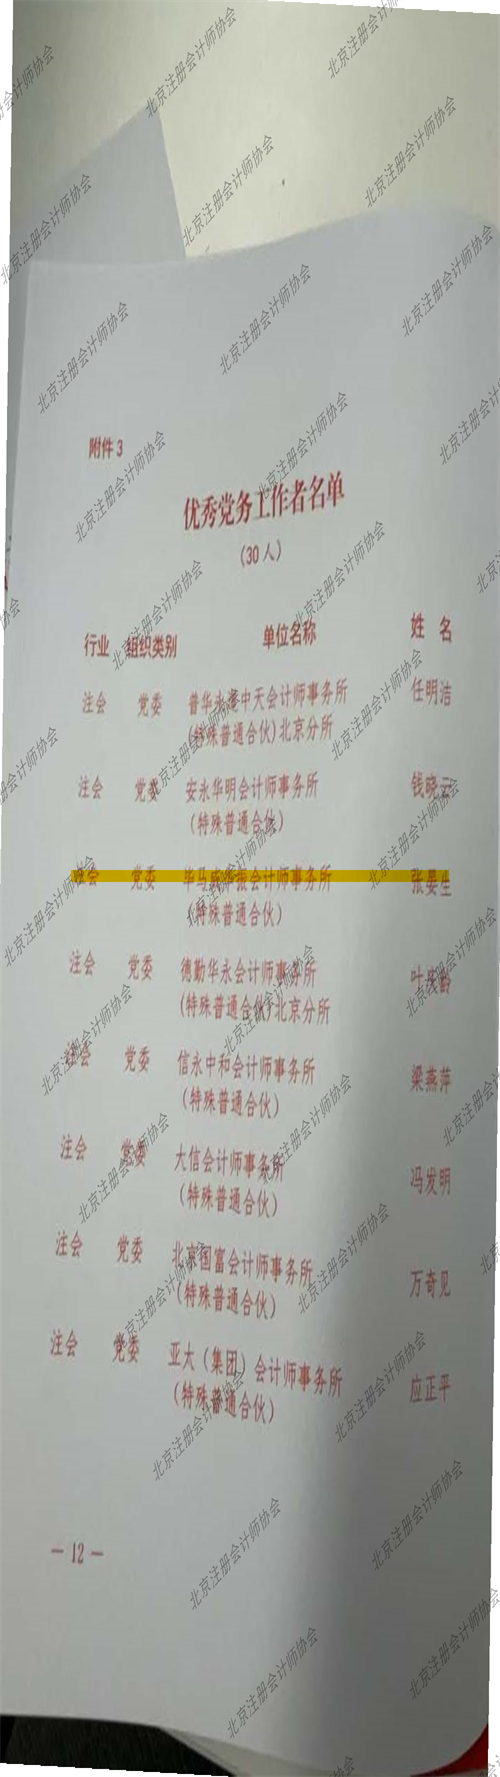 附件3
优秀党务工作者名单
(30人)
行业 组织类别 单位名称 姓名
注会 党委 普华永道中天会计师事务所 任明洁
(特殊普通合伙)北京分所
注会 党委 安永华明会计师事务所 钱晓云
(特殊普通合伙)
注会 党委 毕马威华振会计师事务所 张晏生
(特殊普通合伙)
注会 党委 德勤华永会计师事务所
(特殊普通合伙)北京分所
注会 党委 信永中和会计师事务所 梁燕萍
(特殊普通合伙)
注会 党委 大信会计师事务所 冯发明
(特殊普通合伙)
注会 党委 北京国富会计师事务所 万奇见
(特殊普通合伙)
注会 党委 亚太(集团)会计师事务所 应正平
(特殊普通合伙)
— 12 —
北京注册会计师协会